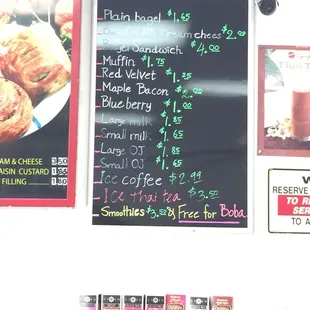 Plain bagel $1.65
cream chees $2.00
Bagel Sandwich $4.00
Muffin $1.75
Red Velvet $1.25
Maple Bacon $2.00
Blueberry $1.00
Large milk $1.85
Small milk $1.65
Large OJ $1.85
Small OJ $1.65
Ice coffee $2.99
Ice thai tea $3.50
Smoothies $3.50 & Free for Boba
AM & CHEESE 3.50
AISIN CUSTARD 1.85
FILLING 1.60
Thai T
W
RESERVE
TO R
SER
TO A